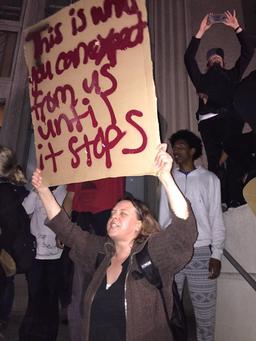 This is why
you can expect
from us
until
it stops